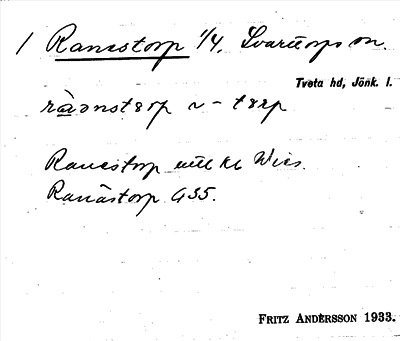 1 Ranestorp 1/4. Svarttorps sn.
Tveta hd, Jönk. l.
Ranestorp utt kl Wies.
Ranåstorp G35.
FRITZ ANDERSSON 1933.